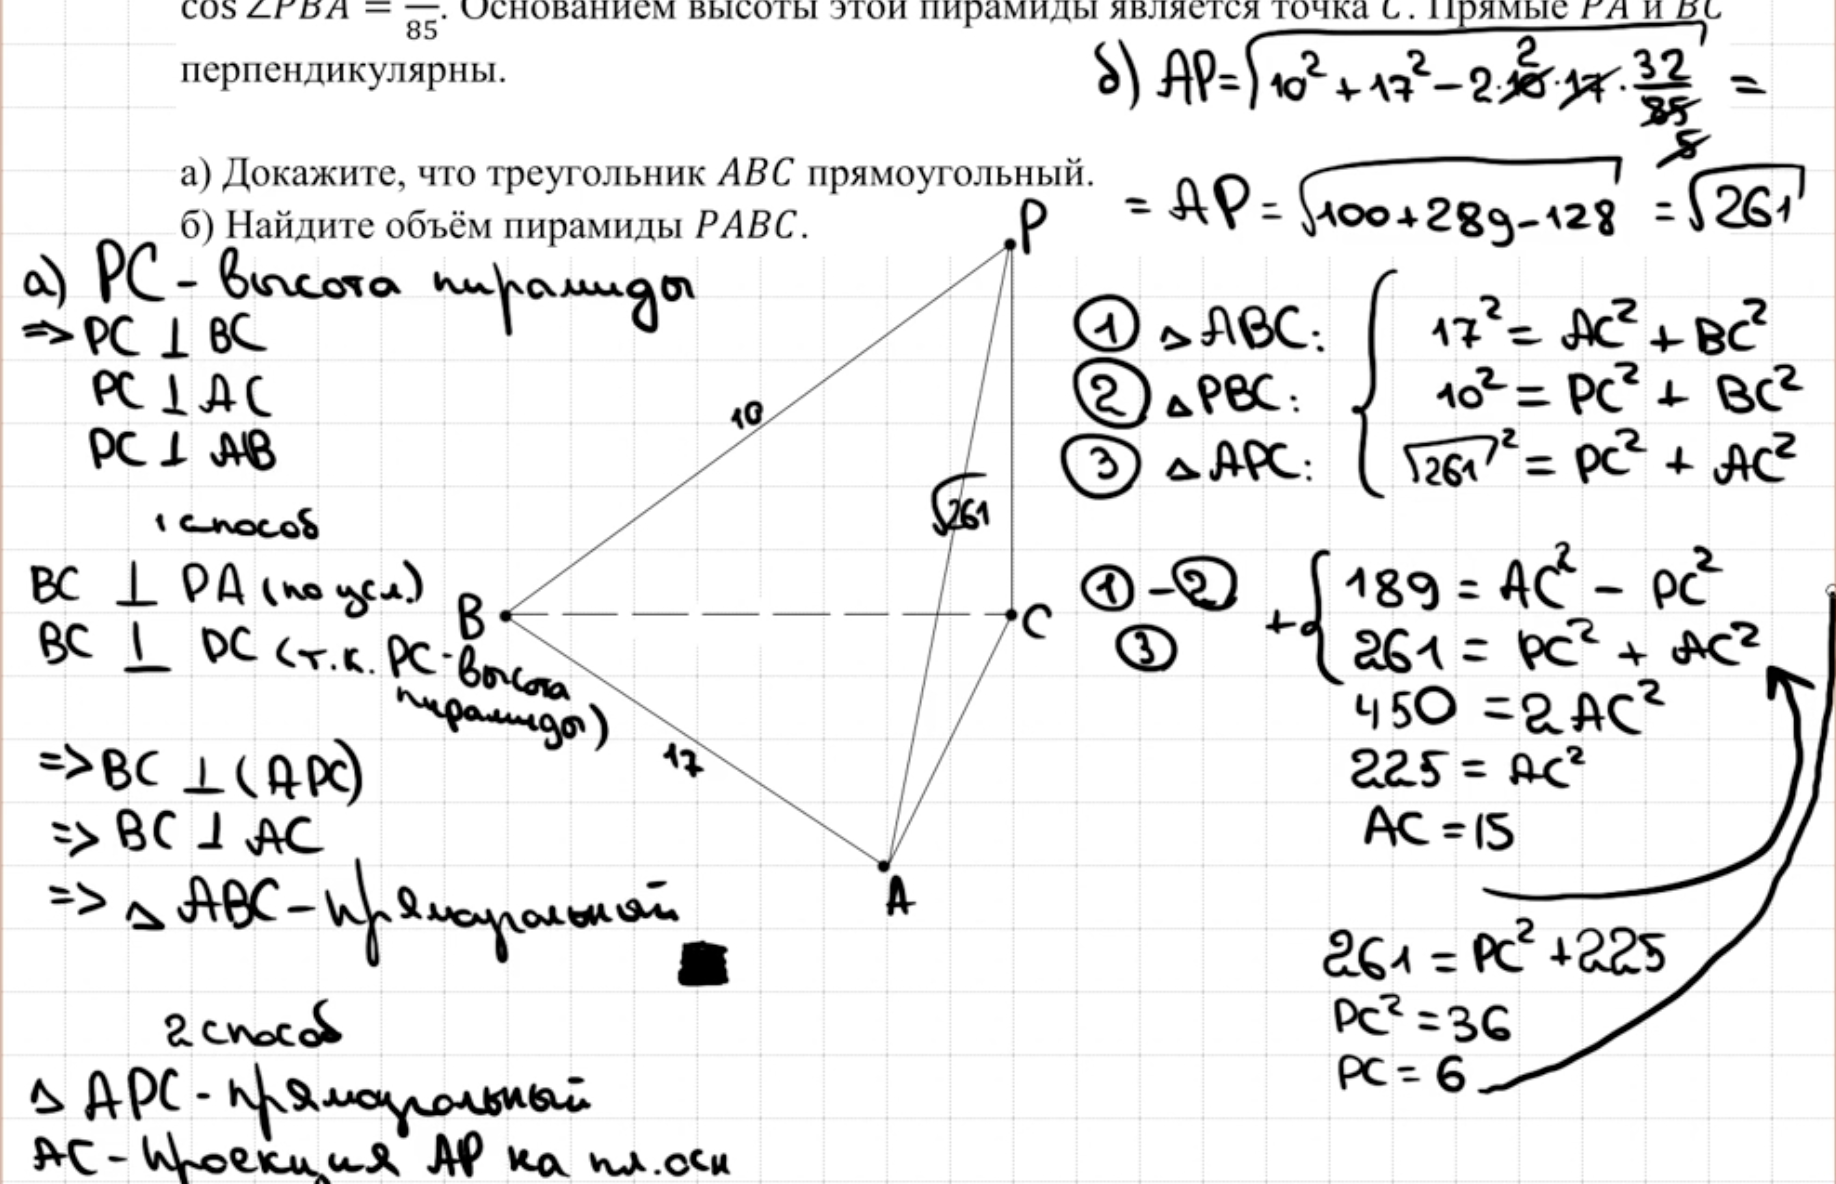 cos ∠PBA = —/85. Основанием высоты этой пирамиды является точка C. Прямые PA и BC
перпендикулярны.
а) Докажите, что треугольник ABC прямоугольный.
б) Найдите объём пирамиды PABC.
а) PC - высота пирамиды
=> PC ⊥ BC
PC ⊥ AC
PC ⊥ AB
1 способ
BC ⊥ PA (по усл.)
BC ⊥ PC (т.к. PC - высота
пирамиды)
=> BC ⊥ (APC)
=> BC ⊥ AC
=> △ ABC - прямоугольный
2 способ
△ APC - прямоугольный
AC - проекция AP на пл. осн
P
10
√261
B
C
17
A
б) AP = √(10² + 17² - 2·10·17 · 32/85) =
2
5
= AP = √(100 + 289 - 128) = √261
① △ ABC: 17² = AC² + BC²
② △ PBC: 10² = PC² + BC²
③ △ APC: √261² = PC² + AC²
① - ② 189 = AC² - PC²
③ + 261 = PC² + AC²
450 = 2AC²
225 = AC²
AC = 15
261 = PC² + 225
PC² = 36
PC = 6